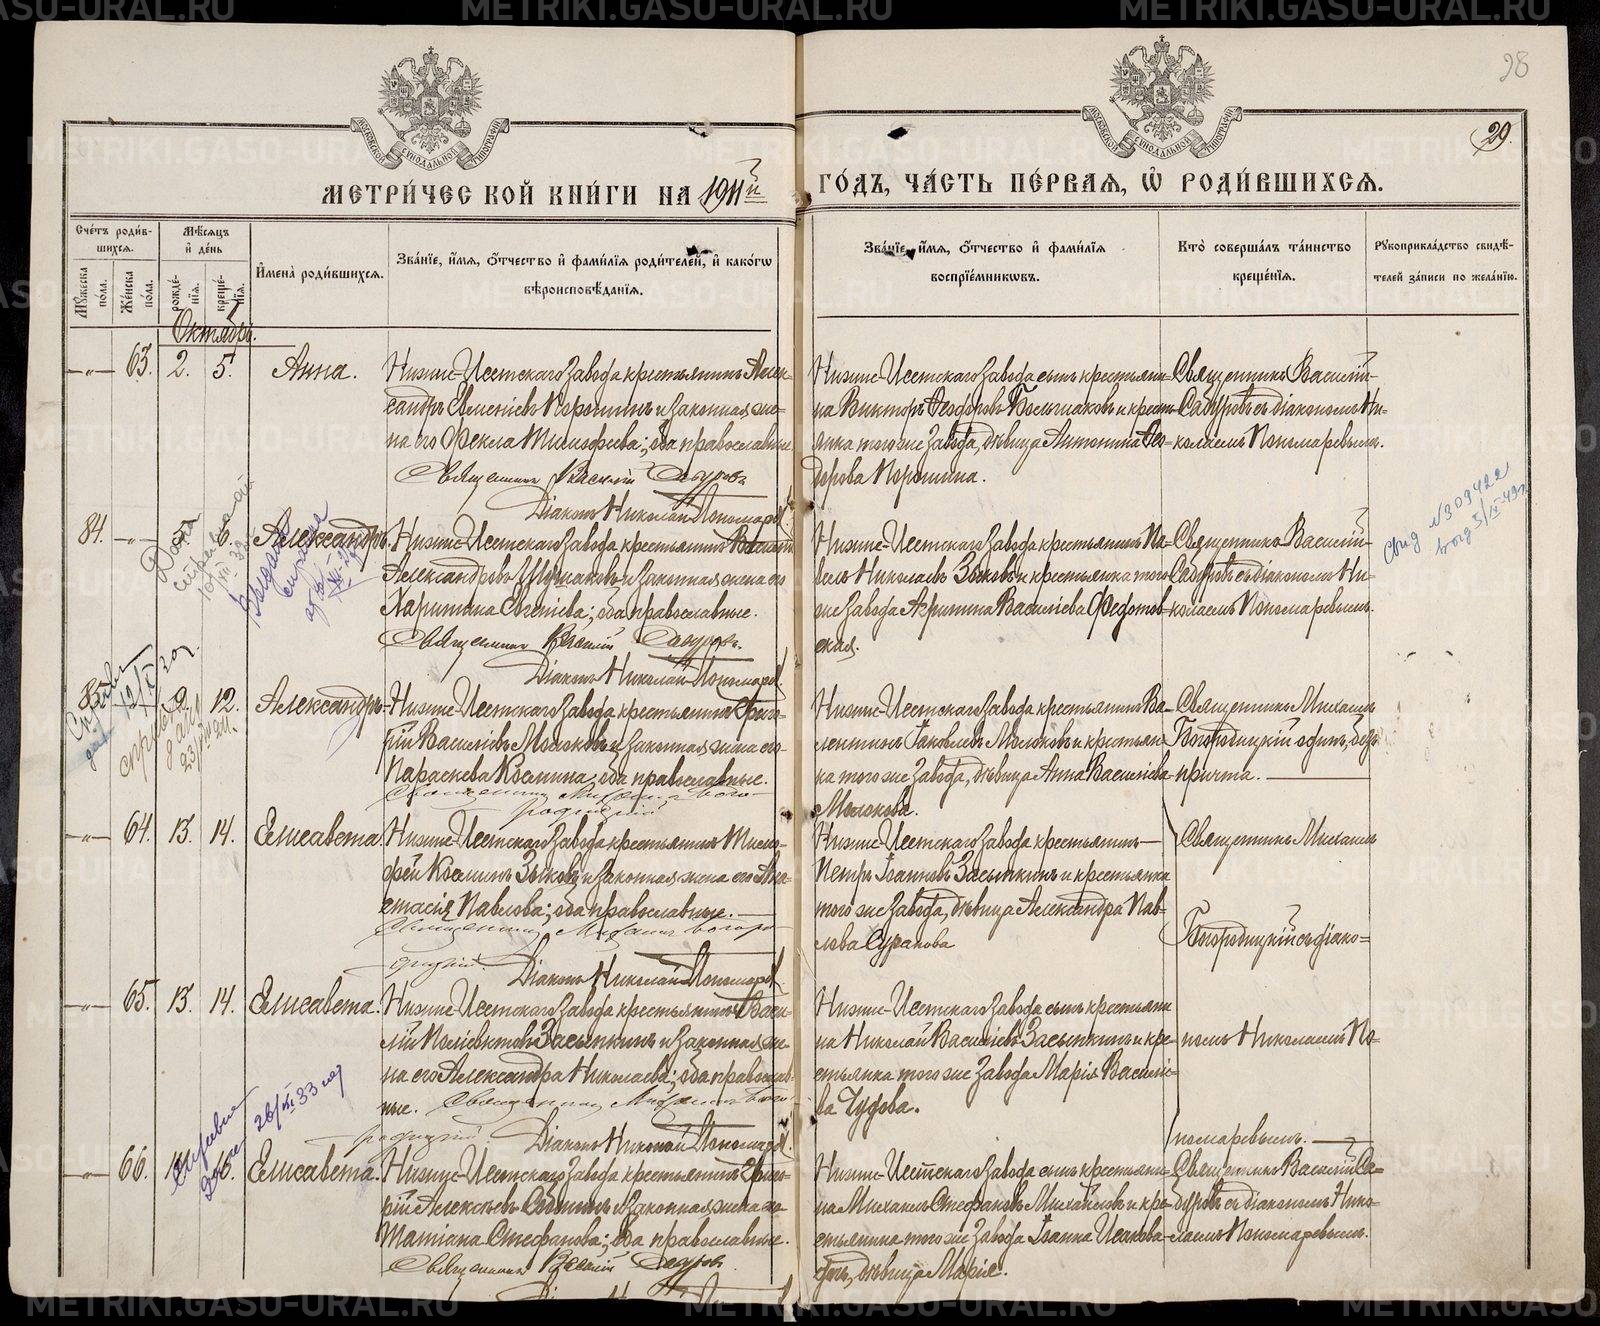 METRIKI.GASO-URAL.RU
28
29.
МОСКОВСКОЙ СѴНОДАЛЬНОЙ ТИПОГРАФІИ
МОСКОВСКОЙ СѴНОДАЛЬНОЙ ТИПОГРАФІИ
МЕТРИ́ЧЕСКОЙ КНИ́ГИ НА 1911й ГО́ДЪ, ЧА́СТЬ ПЕ́РВАЯ, Ѡ҆ РОДИ́ВШИХСЯ.
Сче́тъ роди́в-
шихся.
Мꙋ́жеска по́ла.
Же́нска по́ла.
Мѣ́сяцъ
и҆ де́нь
рожде́-
нїя.
креще́-
нїя.
И҆мена̀ роди́вшихся.
Зва́нїе, и҆́мя, ѻ҆́тчество и҆ фами́лїя роди́телей, и҆ како́гѡ
вѣроисповѣ́данїя.
Зва́нїе, и҆́мя, ѻ҆́тчество и҆ фами́лїя
воспрїе́мникѡвъ.
Кто̀ соверша́лъ та́инство
креще́нїя.
Рꙋкоприкла́дство свидѣ́-
телей за́писи по жела́нїю.
Октябрь.
—"— 63. 2. 5. Анна.
Нижне-Исетскаго завода крестьянинъ Алек-
сандръ Евменіевъ Поротинъ и законная же-
на его Фекла Тимофеева; оба православные
Священникъ Василій Садуровъ
Діаконъ Николай Пономарев
Нижне-Исетскаго завода сынъ крестьяни-
на Викторъ Феодоровъ Большаковъ и кресть-
янка того же завода, дѣвица Антонина Фео-
дорова Поротина.
Священникъ Василій
Садуровъ съ діакономъ Ни-
колаемъ Пономаревымъ.
84. —"— 5. 6. Александръ.
Нижне-Исетскаго завода крестьянинъ Василій
Александровъ и законная жена его
Харитина Евгеніева; оба православные.
Священникъ Василій Садуровъ.
Діаконъ Николай Пономарев
Нижне-Исетскаго завода крестьянинъ Па-
велъ Николаевъ Зыковъ и крестьянка того
же завода Агрипина Василіева Федотов-
ская.
Священникъ Василій
Садуровъ съ діакономъ Ни-
колаемъ Пономаревымъ.
85. 9. 12. Александръ
Нижне-Исетскаго завода крестьянинъ Григо-
рій Василіевъ Молоковъ и законная жена его
Параскева Космина; оба православные.
Священникъ Михаилъ Бого-
родицкій
Нижне-Исетскаго завода крестьянинъ Ва-
лентинъ Іаковлевъ Молоковъ и крестьян-
ка того же завода, дѣвица Анна Василіева
Молокова.
Священникъ Михаилъ
Богородицкій одинъ, безъ
причта.
—"— 64. 13. 14. Елисавета.
Нижне-Исетскаго завода крестьянинъ Тимо-
фей Косминъ Зыковъ и законная жена его Ана-
стасія Павлова; оба православные.
Священникъ Михаилъ Богоро-
дицкій. Діаконъ Николай Пономарев
Нижне-Исетскаго завода крестьянинъ
Петръ Іоанновъ Засыпкинъ и крестьянка
того же завода, дѣвица Александра Пав-
лова Суранова
Священникъ Михаилъ
Богородицкій съ діако-
—"— 65. 13. 14. Елисавета.
Нижне-Исетскаго завода крестьянинъ Васи-
лій Поліевктовъ Засыпкинъ и законная же-
на его Александра Николаева; оба православ-
ные. Священникъ Михаилъ Бого-
родицкій. Діаконъ Николай Пономарев
Нижне-Исетскаго завода сынъ крестьяни-
на Николай Василіевъ Засыпкинъ и кре-
стьянка того же завода Марія Василіе-
ва Чудова.
номъ Николаемъ По-
номаревымъ.
—"— 66. Елисавета.
Нижне-Исетскаго завода крестьянинъ Григо-
рій Алексѣевъ и законная жена его
Татіана Стефанова; оба православные.
Священникъ Василій Садуровъ.
Нижне-Исетскаго завода сынъ крестьяни-
на Михаилъ Стефановъ Михайловъ и кре-
стьянина того же завода Іоанна Исакова
дочь, дѣвица Марія.
Священникъ Василій Са-
дуровъ съ діакономъ Нико-
лаемъ Пономаревымъ.